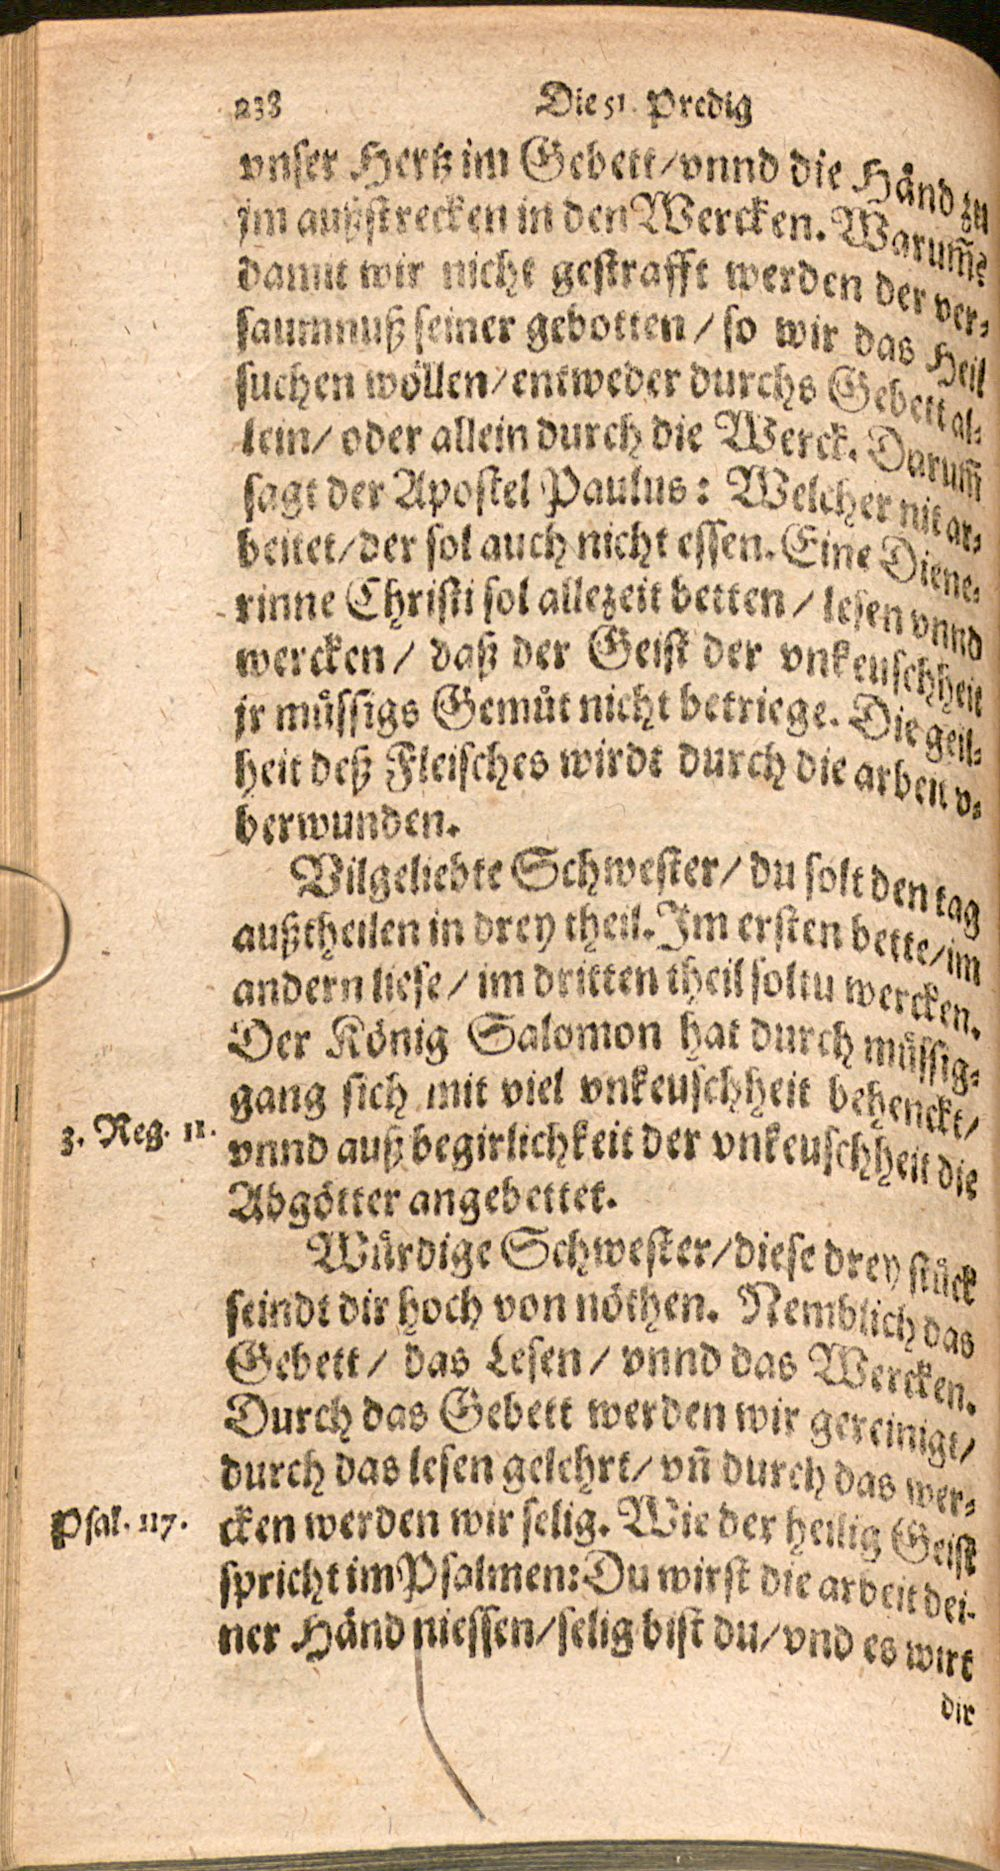 238 Die 51. Predig
vnser Hertz im Gebett/vnnd die Hånd zu
jm außstrecken in den Wercken. Warum̃?
damit wir nicht gestrafft werden der ver⸗
saumnuß seiner gebotten / so wir das Heil
suchen wöllen/entweder durchs Gebett al⸗
lein/ oder allein durch die Werck. Darum̃
sagt der Apostel Paulus: Welcher nit ar⸗
beitet/der sol auch nicht essen. Eine Diene⸗
rinne Christi sol allezeit betten / lesen vnnd
wercken / daß der Geist der vnkeuschheit
jr müssigs Gemüt nicht betriege. Die geil⸗
heit deß Fleisches wirdt durch die arbeit v⸗
berwunden.
Vilgeliebte Schwester/ du solt den tag
außtheilen in drey theil. Im ersten bette/im
andern liese / im dritten theil soltu wercken.
Der König Salomon hat durch müssig⸗
gang sich mit viel vnkeuschheit behenckt/
3. Reg. 11.
vnnd auß begirlichkeit der vnkeuschheit die
Abgötter angebettet.
Würdige Schwester/diese drey stück
seindt dir hoch von nöthen. Nemblich das
Gebett / das Lesen / vnnd das Wercken.
Durch das Gebett werden wir gereinigt/
durch das lesen gelehrt/ vñ durch das wer⸗
Psal. 117.
cken werden wir selig. Wie der heilig Geist
spricht im Psalmen: Du wirst die arbeit dei⸗
ner Händ niessen/selig bist du/vnd es wirt
dir